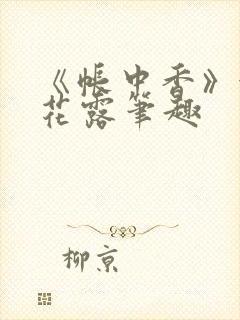 《帐中香》
花露笔趣
柳京